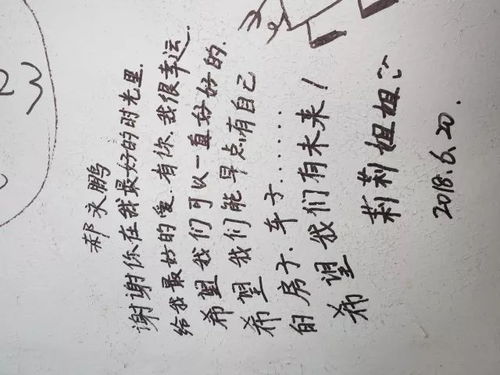 郝永鹏
谢谢你在我最好的时光里.
给我最好的爱.有你.我很幸运.
希望我们可以一直好好的.
希望我们能早点有自己
的房子.车子......
希望我们有未来!
莉莉姐姐
2018.6.20.